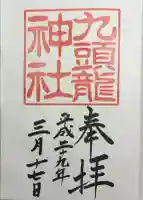 九頭龍
神社
奉拝
平成二十九年
三月十七日